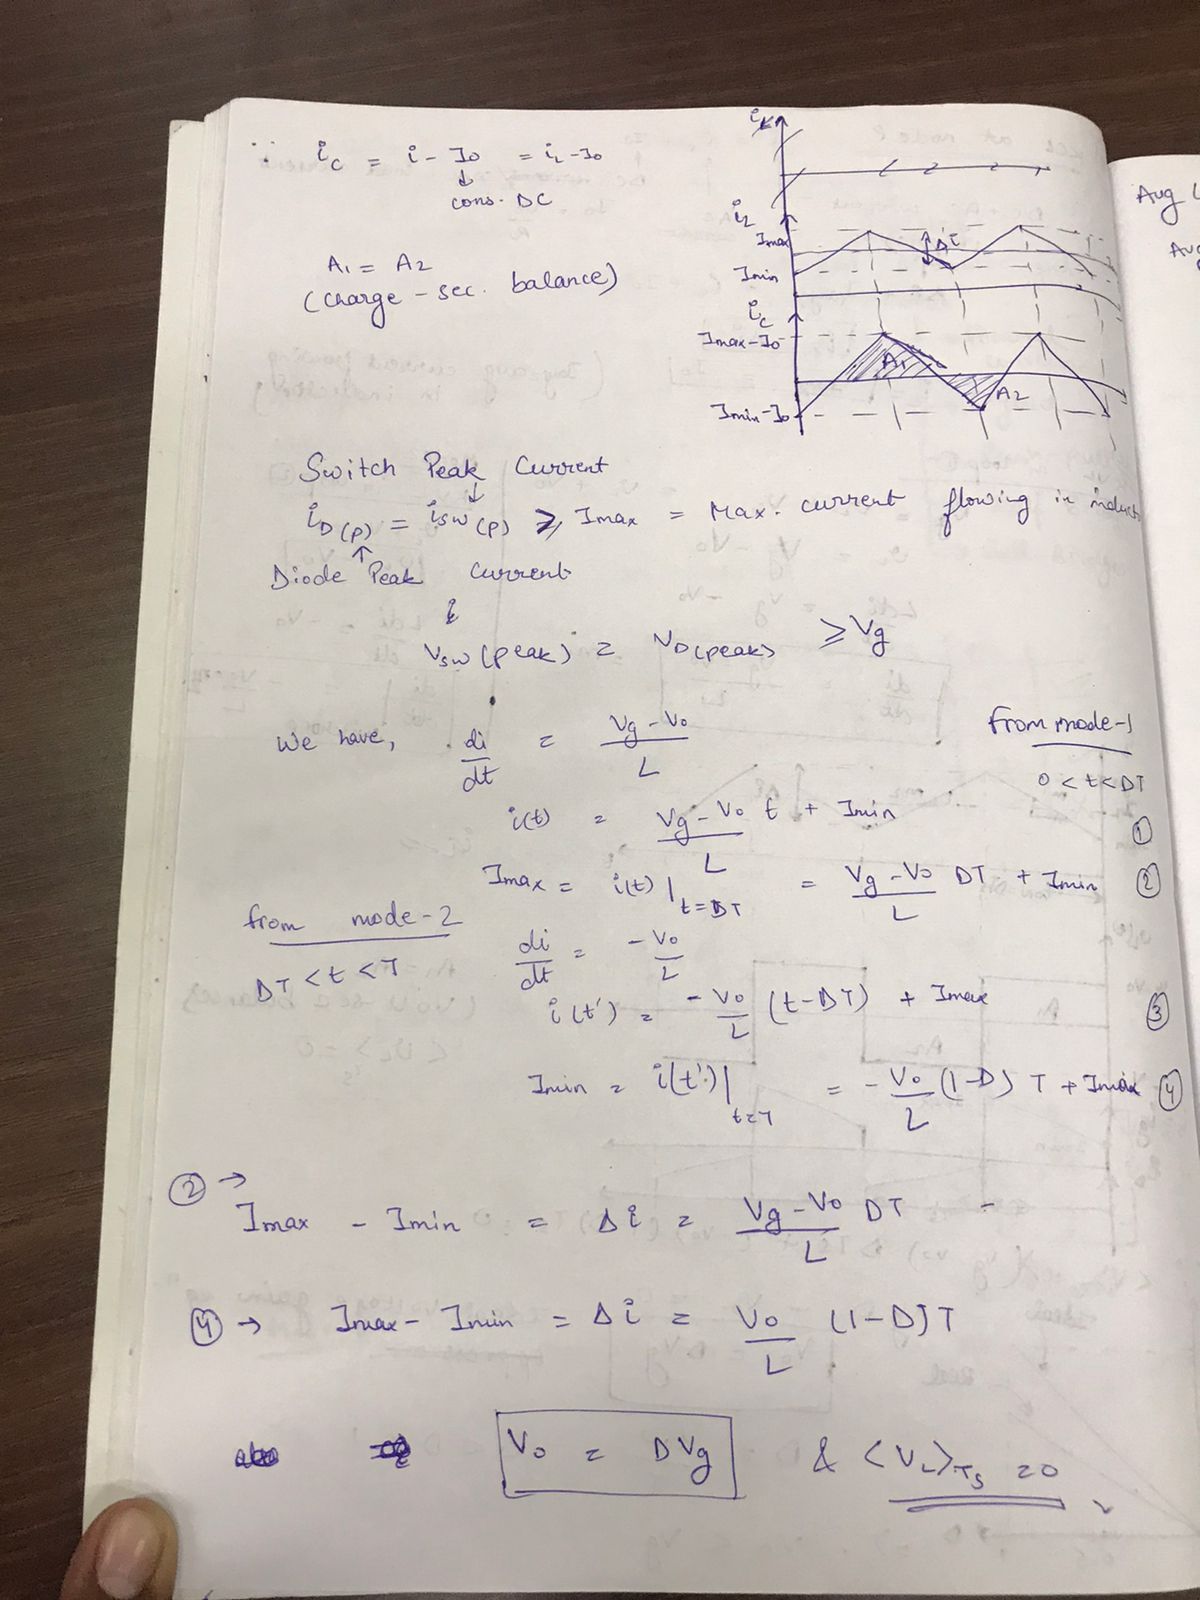 ∵ ic = i - Io = iL - Io
↓
cons. DC
A1 = A2
(charge - sec. balance)
iL
Imax
Δi
Imin
ic
Imax-Io
A1
A2
Imin-Io
Switch Peak Current
↓
iD(p) = isw(p) ≥ Imax = Max. current flowing in induct
↑
Diode Peak Current
Vsw(peak) = VD(peak) ≥ Vg
We have, di/dt = (Vg - Vo)/L from mode-1
0 < t < DT
i(t) = (Vg - Vo)/L t + Imin ①
Imax = i(t)|t=DT = (Vg - Vo)/L DT + Imin ②
from mode-2
DT < t < T
di/dt = -Vo/L
i(t') = -Vo/L (t-DT) + Imax ③
Imin = i(t')|t=T = -Vo/L (1-D) T + Imax ④
② →
Imax - Imin = Δi = (Vg - Vo)/L DT
④ → Imax - Imin = Δi = Vo/L (1-D)T
Vo = DVg & <VL>Ts = 0
Aug